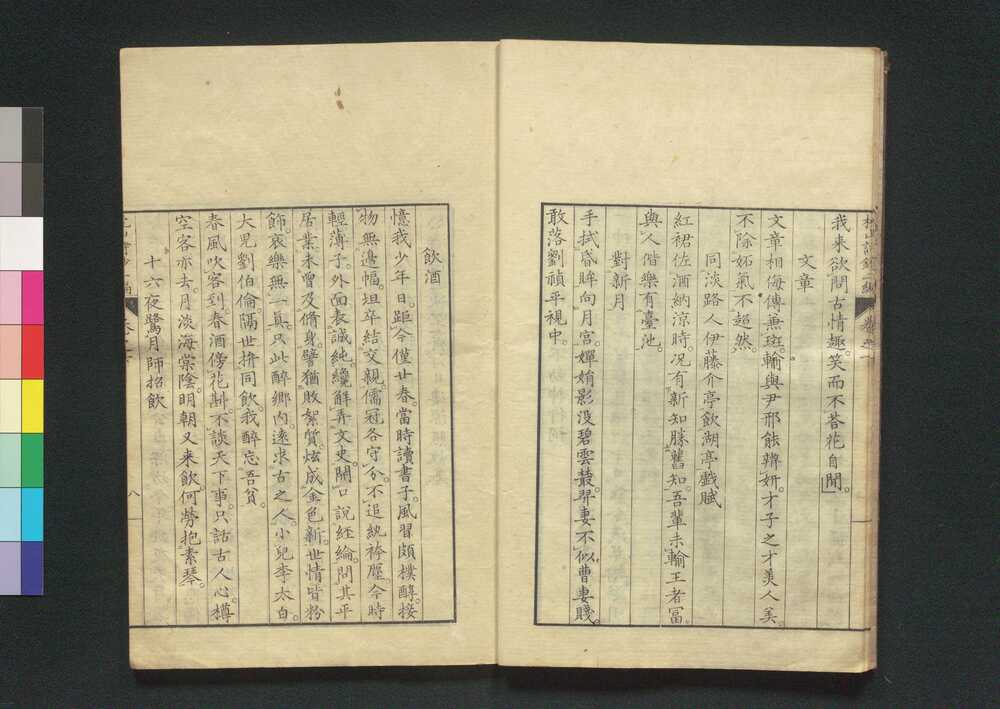 我来欲問古情趣。笑而不荅花自開」
文章
文章相侮傳兼班。輸與尹邢能辨妍。才子之才美人美。
不除妬氣不超然。
同淡路人伊藤介亭飲湖亭戯賦
紅裙佐酒納涼時。况有新知勝舊知。吾輩未輸王者冨。
與人偕樂有臺池。
對新月
手拭昏眸向月宮。嬋娟影没碧雲叢。羿妻不似曹妻賤。
敢落劉禎平視中。
飲酒
憶我少年日。距今僅廿春。當時讀書子。風習頗樸醇。接
物無邊幅。坦卒結交親。儒冠各守分。不追紈袴塵。今時
輕薄子。外面表誠純。纔解弄文史。開口説經綸。問其平
居業。未曾及脩身。譬猶敗絮質。炫成金色新。世情皆粉
飾。哀樂無一真。只此醉郷内。遠求古之人。小兒李太白。
大兒劉伯倫。隔世拚同飲。我醉忘吾貧。
春風吹客到。春酒傍花斟。不談天下事。只話古人心。樽
空客亦去。月淡海棠陰。明朝又来飲。何勞抱素琴。
十六夜鷺月師招飲
八